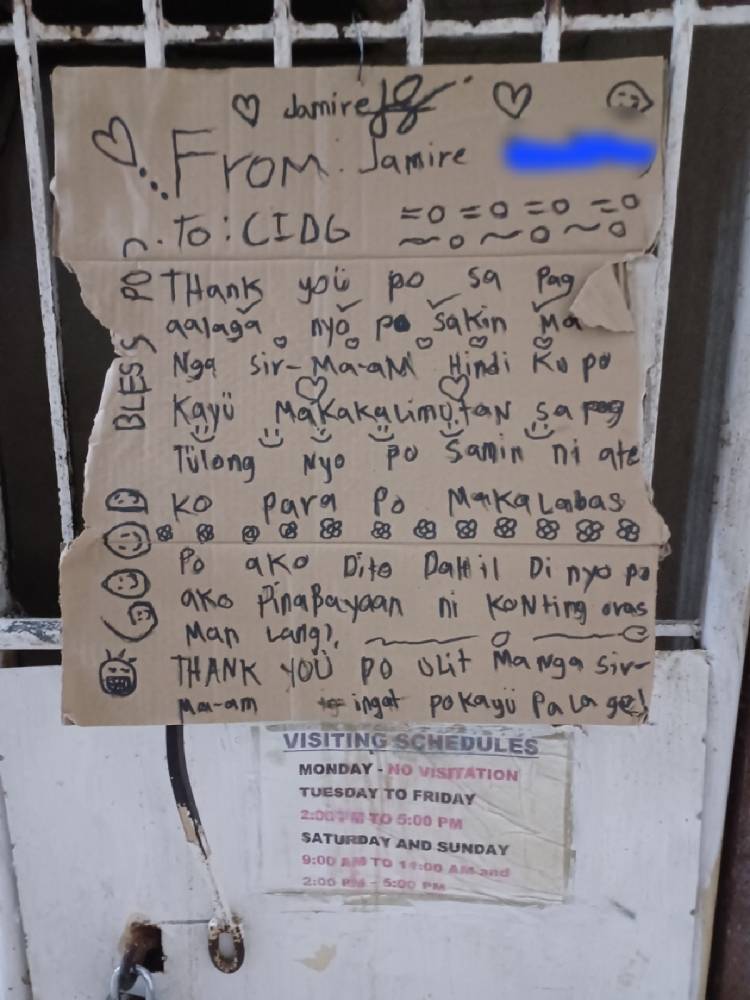 Jamire
From: Jamire
To: CIDG
BLESS PO
THank yoü po sa Pag
aalaga nyo po sakin Ma
Nga sir-Ma-aM Hindi Ko po
Kayü MaKaKalimutaN sa pag
Tülong Nyo po Samin ni ate
KO para Po MaKaLabas
Po aKo Dito Dahil Di nyo po
aKo PinaBayaan ni KoNting oras
Man Lang?,
THANK YOÜ PO ULit Ma Nga Sir-
Ma-am ingat po Kayü PaLa ge!
VISITING SCHEDULES
MONDAY - NO VISITATION
TUESDAY TO FRIDAY
2:00 PM TO 5:00 PM
SATURDAY AND SUNDAY
9:00 AM TO 11:00 AM and
2:00 PM - 5:00 PM